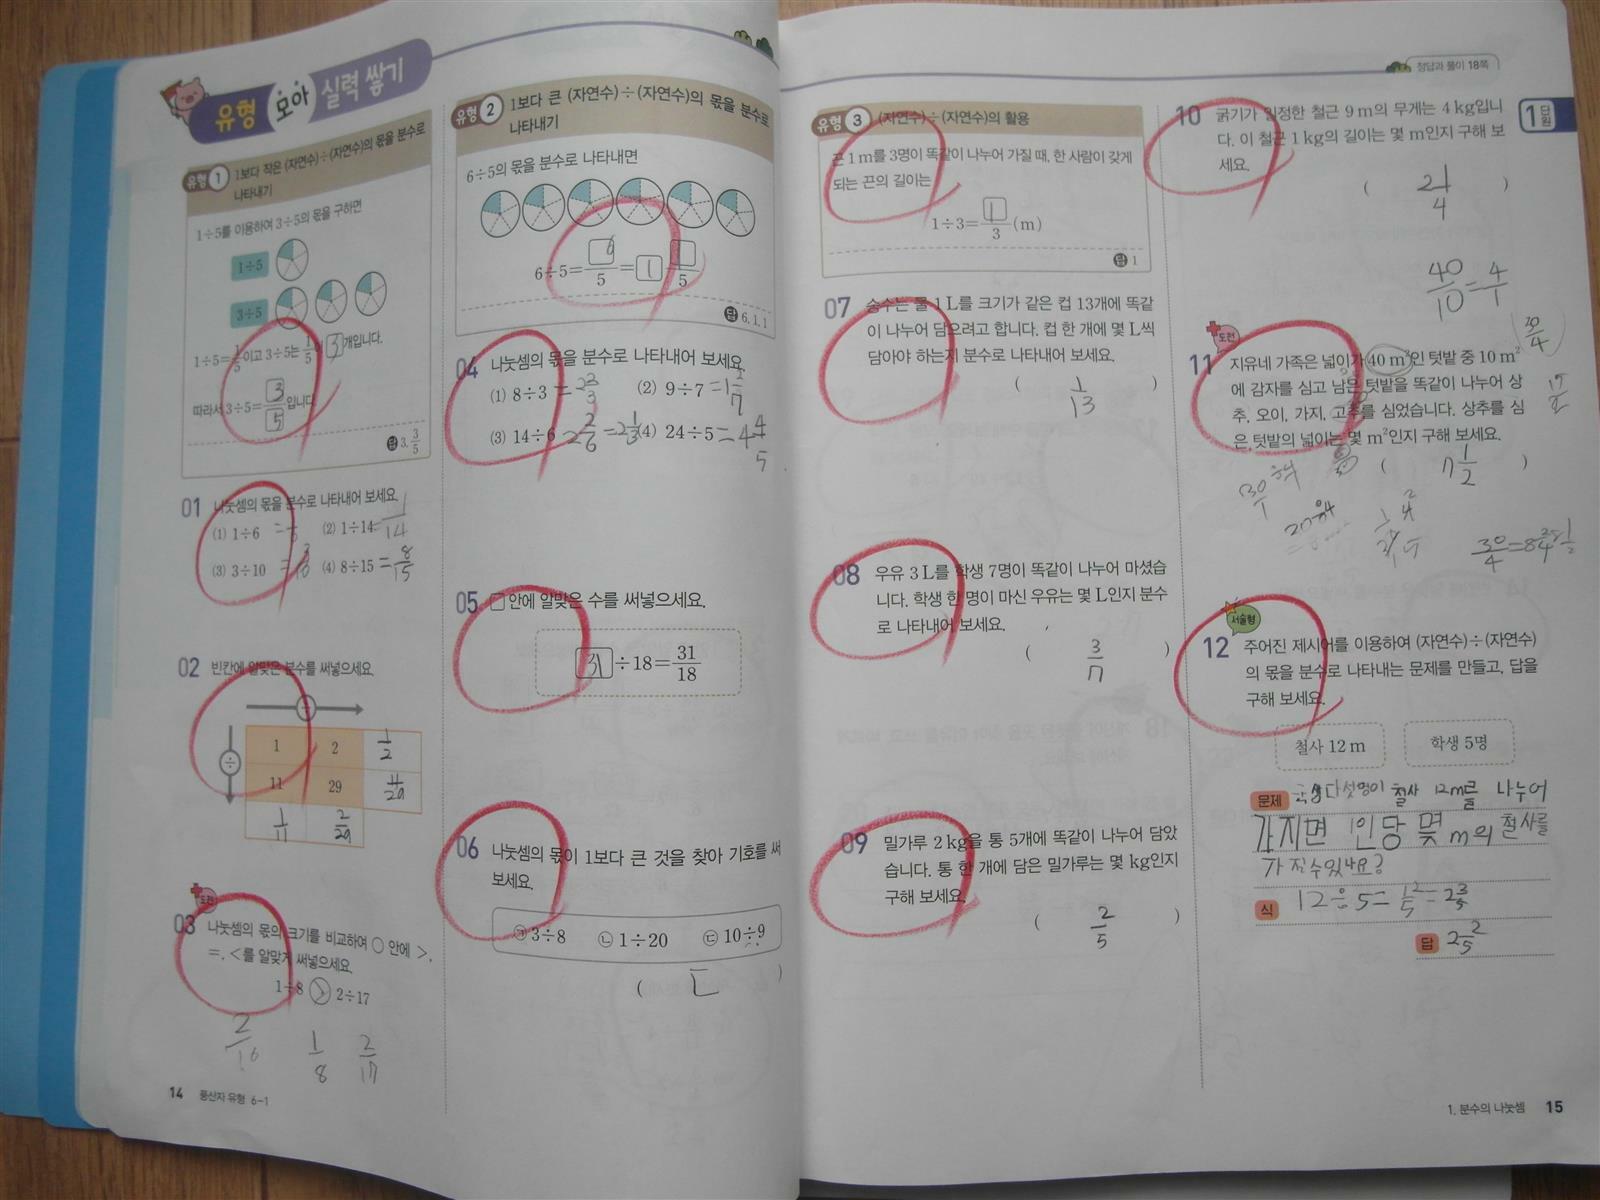 유형 모아 실력 쌓기
유형 1 1보다 작은 (자연수)÷(자연수)의 몫을 분수로
나타내기
1÷5를 이용하여 3÷5의 몫을 구하면
1÷5
3÷5
1÷5=1/5이고 3÷5는 1/5이 3개입니다.
따라서 3÷5=3/5입니다.
답 3, 3/5
01 나눗셈의 몫을 분수로 나타내어 보세요.
(1) 1÷6 = (2) 1÷14=1/14
(3) 3÷10 =3/10 (4) 8÷15=8/15
02 빈칸에 알맞은 분수를 써넣으세요.
÷
÷
1 2 1/2
11 29 11/29
1/11 2/29
도전
03 나눗셈의 몫의 크기를 비교하여 ○ 안에 >,
=, <를 알맞게 써넣으세요.
1÷8 > 2÷17
2/16 1/8 2/17
14 풍산자 유형 6-1
유형 2 1보다 큰 (자연수)÷(자연수)의 몫을 분수로
나타내기
6÷5의 몫을 분수로 나타내면
6÷5=6/5=1 1/5
답 6, 1, 1
04 나눗셈의 몫을 분수로 나타내어 보세요.
(1) 8÷3 =2 (2) 9÷7=1 2/7
(3) 14÷6 2 2/6=2 1/3 (4) 24÷5=4 4/5
05 □ 안에 알맞은 수를 써넣으세요.
31÷18=31/18
06 나눗셈의 몫이 1보다 큰 것을 찾아 기호를 써
보세요.
㉠ 3÷8 ㉡ 1÷20 ㉢ 10÷9
( ㄷ )
정답과 풀이 18쪽
1단원
유형 3 (자연수)÷(자연수)의 활용
끈 1 m를 3명이 똑같이 나누어 가질 때, 한 사람이 갖게
되는 끈의 길이는
1÷3=1/3(m)
답 1
07 승수는 물 1 L를 크기가 같은 컵 13개에 똑같
이 나누어 담으려고 합니다. 컵 한 개에 몇 L씩
담아야 하는지 분수로 나타내어 보세요.
( 1/13 )
08 우유 3 L를 학생 7명이 똑같이 나누어 마셨습
니다. 학생 한 명이 마신 우유는 몇 L인지 분수
로 나타내어 보세요.
( 3/7 )
09 밀가루 2 kg을 통 5개에 똑같이 나누어 담았
습니다. 통 한 개에 담은 밀가루는 몇 kg인지
구해 보세요.
( 2/5 )
10 굵기가 일정한 철근 9 m의 무게는 4 kg입니
다. 이 철근 1 kg의 길이는 몇 m인지 구해 보
세요.
( 2 1/4 )
40/10=4/1
30/4
도전
11 지유네 가족은 넓이가 40 m²인 텃밭 중 10 m²
에 감자를 심고 남은 텃밭을 똑같이 나누어 상
추, 오이, 가지, 고추를 심었습니다. 상추를 심
은 텃밭의 넓이는 몇 m²인지 구해 보세요.
( 7 1/2 )
서술형
12 주어진 제시어를 이용하여 (자연수)÷(자연수)
의 몫을 분수로 나타내는 문제를 만들고, 답을
구해 보세요.
철사 12 m 학생 5명
문제 학생 다섯명이 철사 12m를 나누어
가지면 1인당 몇 m의 철사를
가질수있나요?
식 12÷5=12/5=2
답 2 2/5
1. 분수의 나눗셈 15